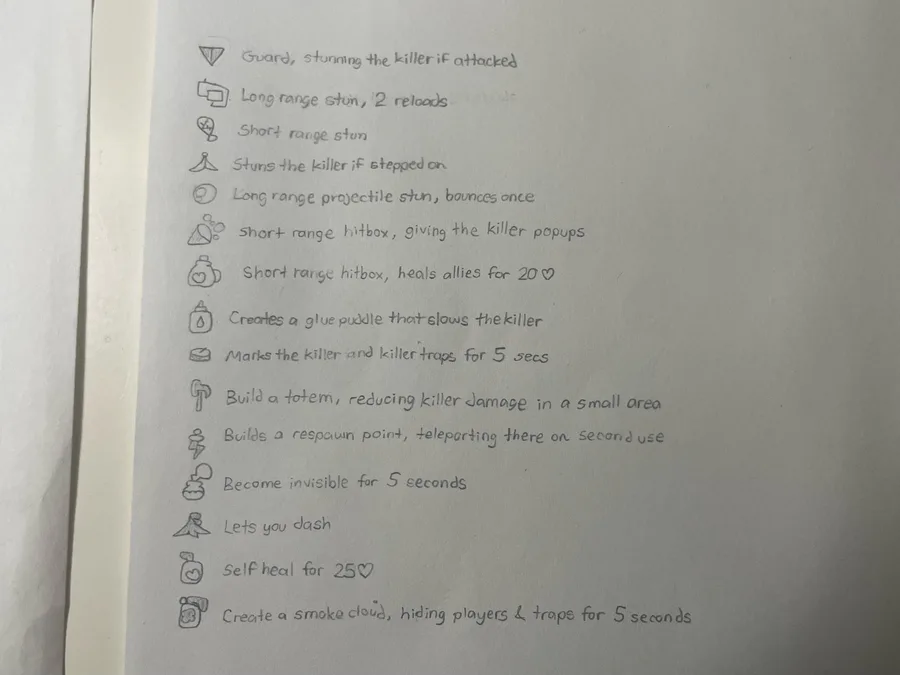 Guard, stunning the killer if attacked
Long range stun, 2 reloads
Short range stun
Stuns the killer if stepped on
Long range projectile stun, bounces once
short range hitbox, giving the killer popups
Short range hitbox, heals allies for 20♡
Creates a glue puddle that slows the killer
Marks the killer and killer traps for 5 secs
Build a totem, reducing killer damage in a small area
Builds a respawn point, teleporting there on second use
Become invisible for 5 seconds
Lets you dash
Self heal for 25♡
Create a smoke cloud, hiding players & traps for 5 seconds